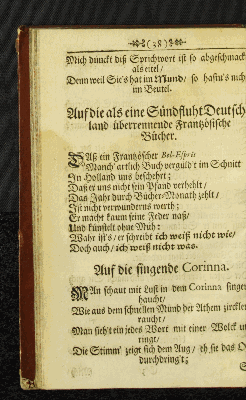 (38)
Mich dünckt diß Sprichwort ist so abgeschmackt
als eitel/
Denn weil Sie's hat im Mund/ so hastu's nicht
im Beutel.
Auf die als eine Sündfluht Deutsch-
land überrennende Frantzösische
Bücher.
Daß ein Frantzöscher Bel-Esprit
Manch' artlich Buch vergüld't im Schnitt
In Holland uns beschehrt;
Daß er uns nicht sein Pfand verhehlt/
Das Jahr durch Bücher-Monath zehlt/
Ist nicht verwunderns werth;
Er macht kaum seine Feder naß/
Und künstelt ohne Müh:
Wahr ist's/ er schreibt ich weiß nicht wie/
Doch auch/ ich weiß nicht was.
Auf die singende Corinna.
Man schaut mit Lust in dem Corinna singe
haucht/
Wie aus dem schnellen Mund der Athem zirckle
raucht/
Man sieht ein jedes Wort mit einer Wolck um
ringt/
Die Stimm' zeigt sich dem Aug/ eh sie das O
durchdring't;